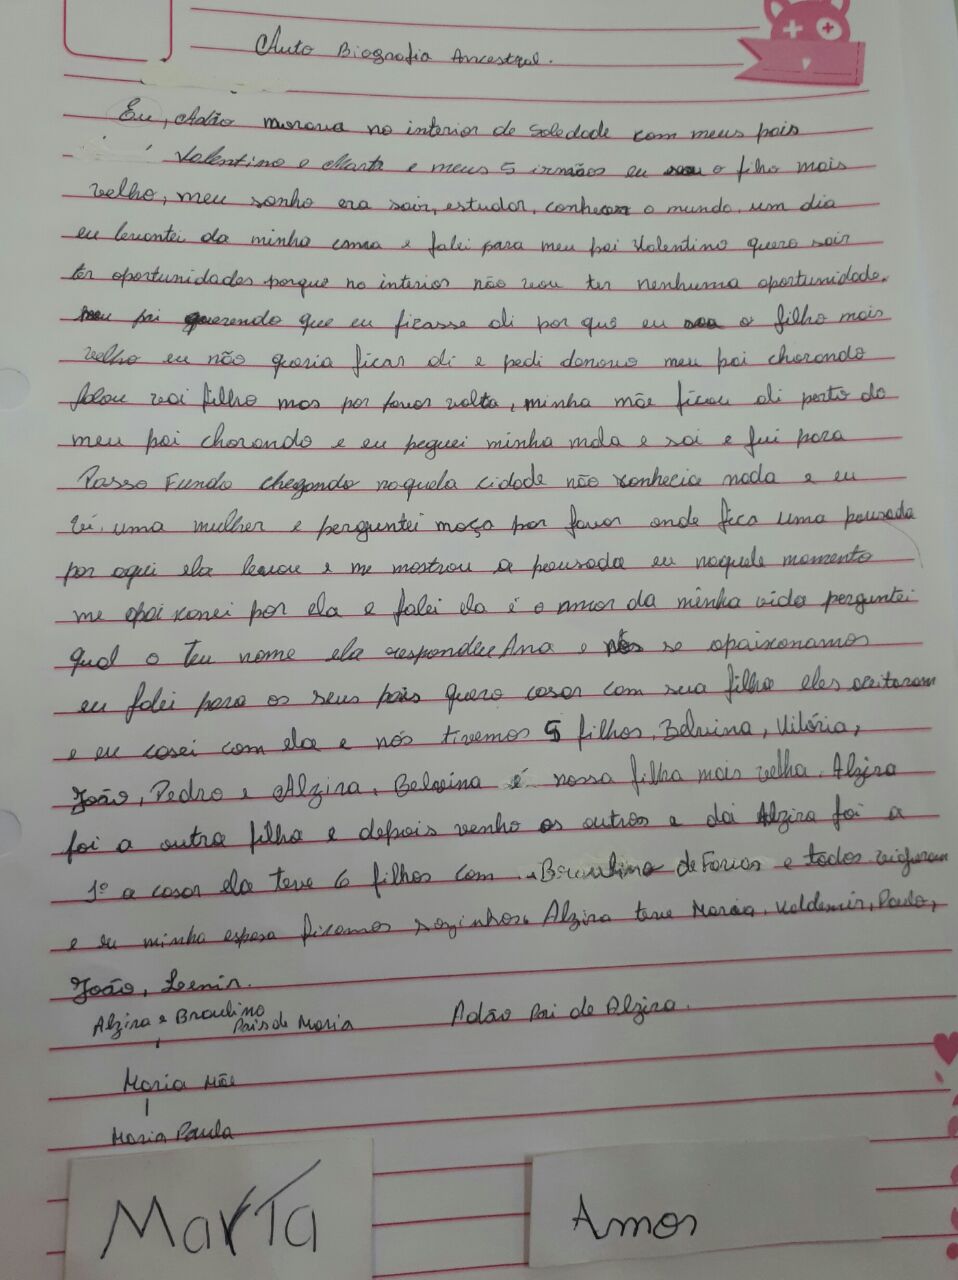 Auto Biografia Ancestral.
Eu, Adão morava no interior de Soledade com meus pais
Valentino e Marta e meus 5 irmãos eu sou o filho mais
velho, meu sonho era sair, estudar, conhecer o mundo, um dia
eu levantei da minha cama e falei para meu pai Valentino quero sair
ter oportunidades porque no interior não vou ter nenhuma oportunidade.
meu pai querendo que eu ficasse ali por que eu sou o filho mais
velho eu não queria ficar ali e pedi denovo meu pai chorando
falou vai filho mas por favor volta, minha mãe ficou ali perto do
meu pai chorando e eu peguei minha mala e sai e fui para
Passo Fundo chegando naquela cidade não conhecia nada e eu
vi, uma mulher e perguntei moça por favor onde fica uma pousada
por aqui ela levou e me mostrou a pousada eu naquele momento
me apaixonei por ela e falei ela é o amor da minha vida perguntei
qual o teu nome ela respondeu Ana e nós se apaixonamos
eu falei para os seus pais quero casar com sua filha eles aceitaram
e eu casei com ela e nós tivemos 5 filhos, Belvina, Vitória,
João, Pedro e Alzira, Belvina é nossa filha mais velha. Alzira
foi a outra filha e depois venho os outros e dai Alzira foi a
1º a casar ela teve 6 filhos com Braulino de Farias e todos
e eu minha esposa ficamos sozinhos. Alzira teve Maria, Valdemir, Paulo,
João, Lenir.
Alzira e Braulino
Pais de Maria
Adão Pai de Alzira.
Maria Mãe
Maria Paula
Marta
Amor